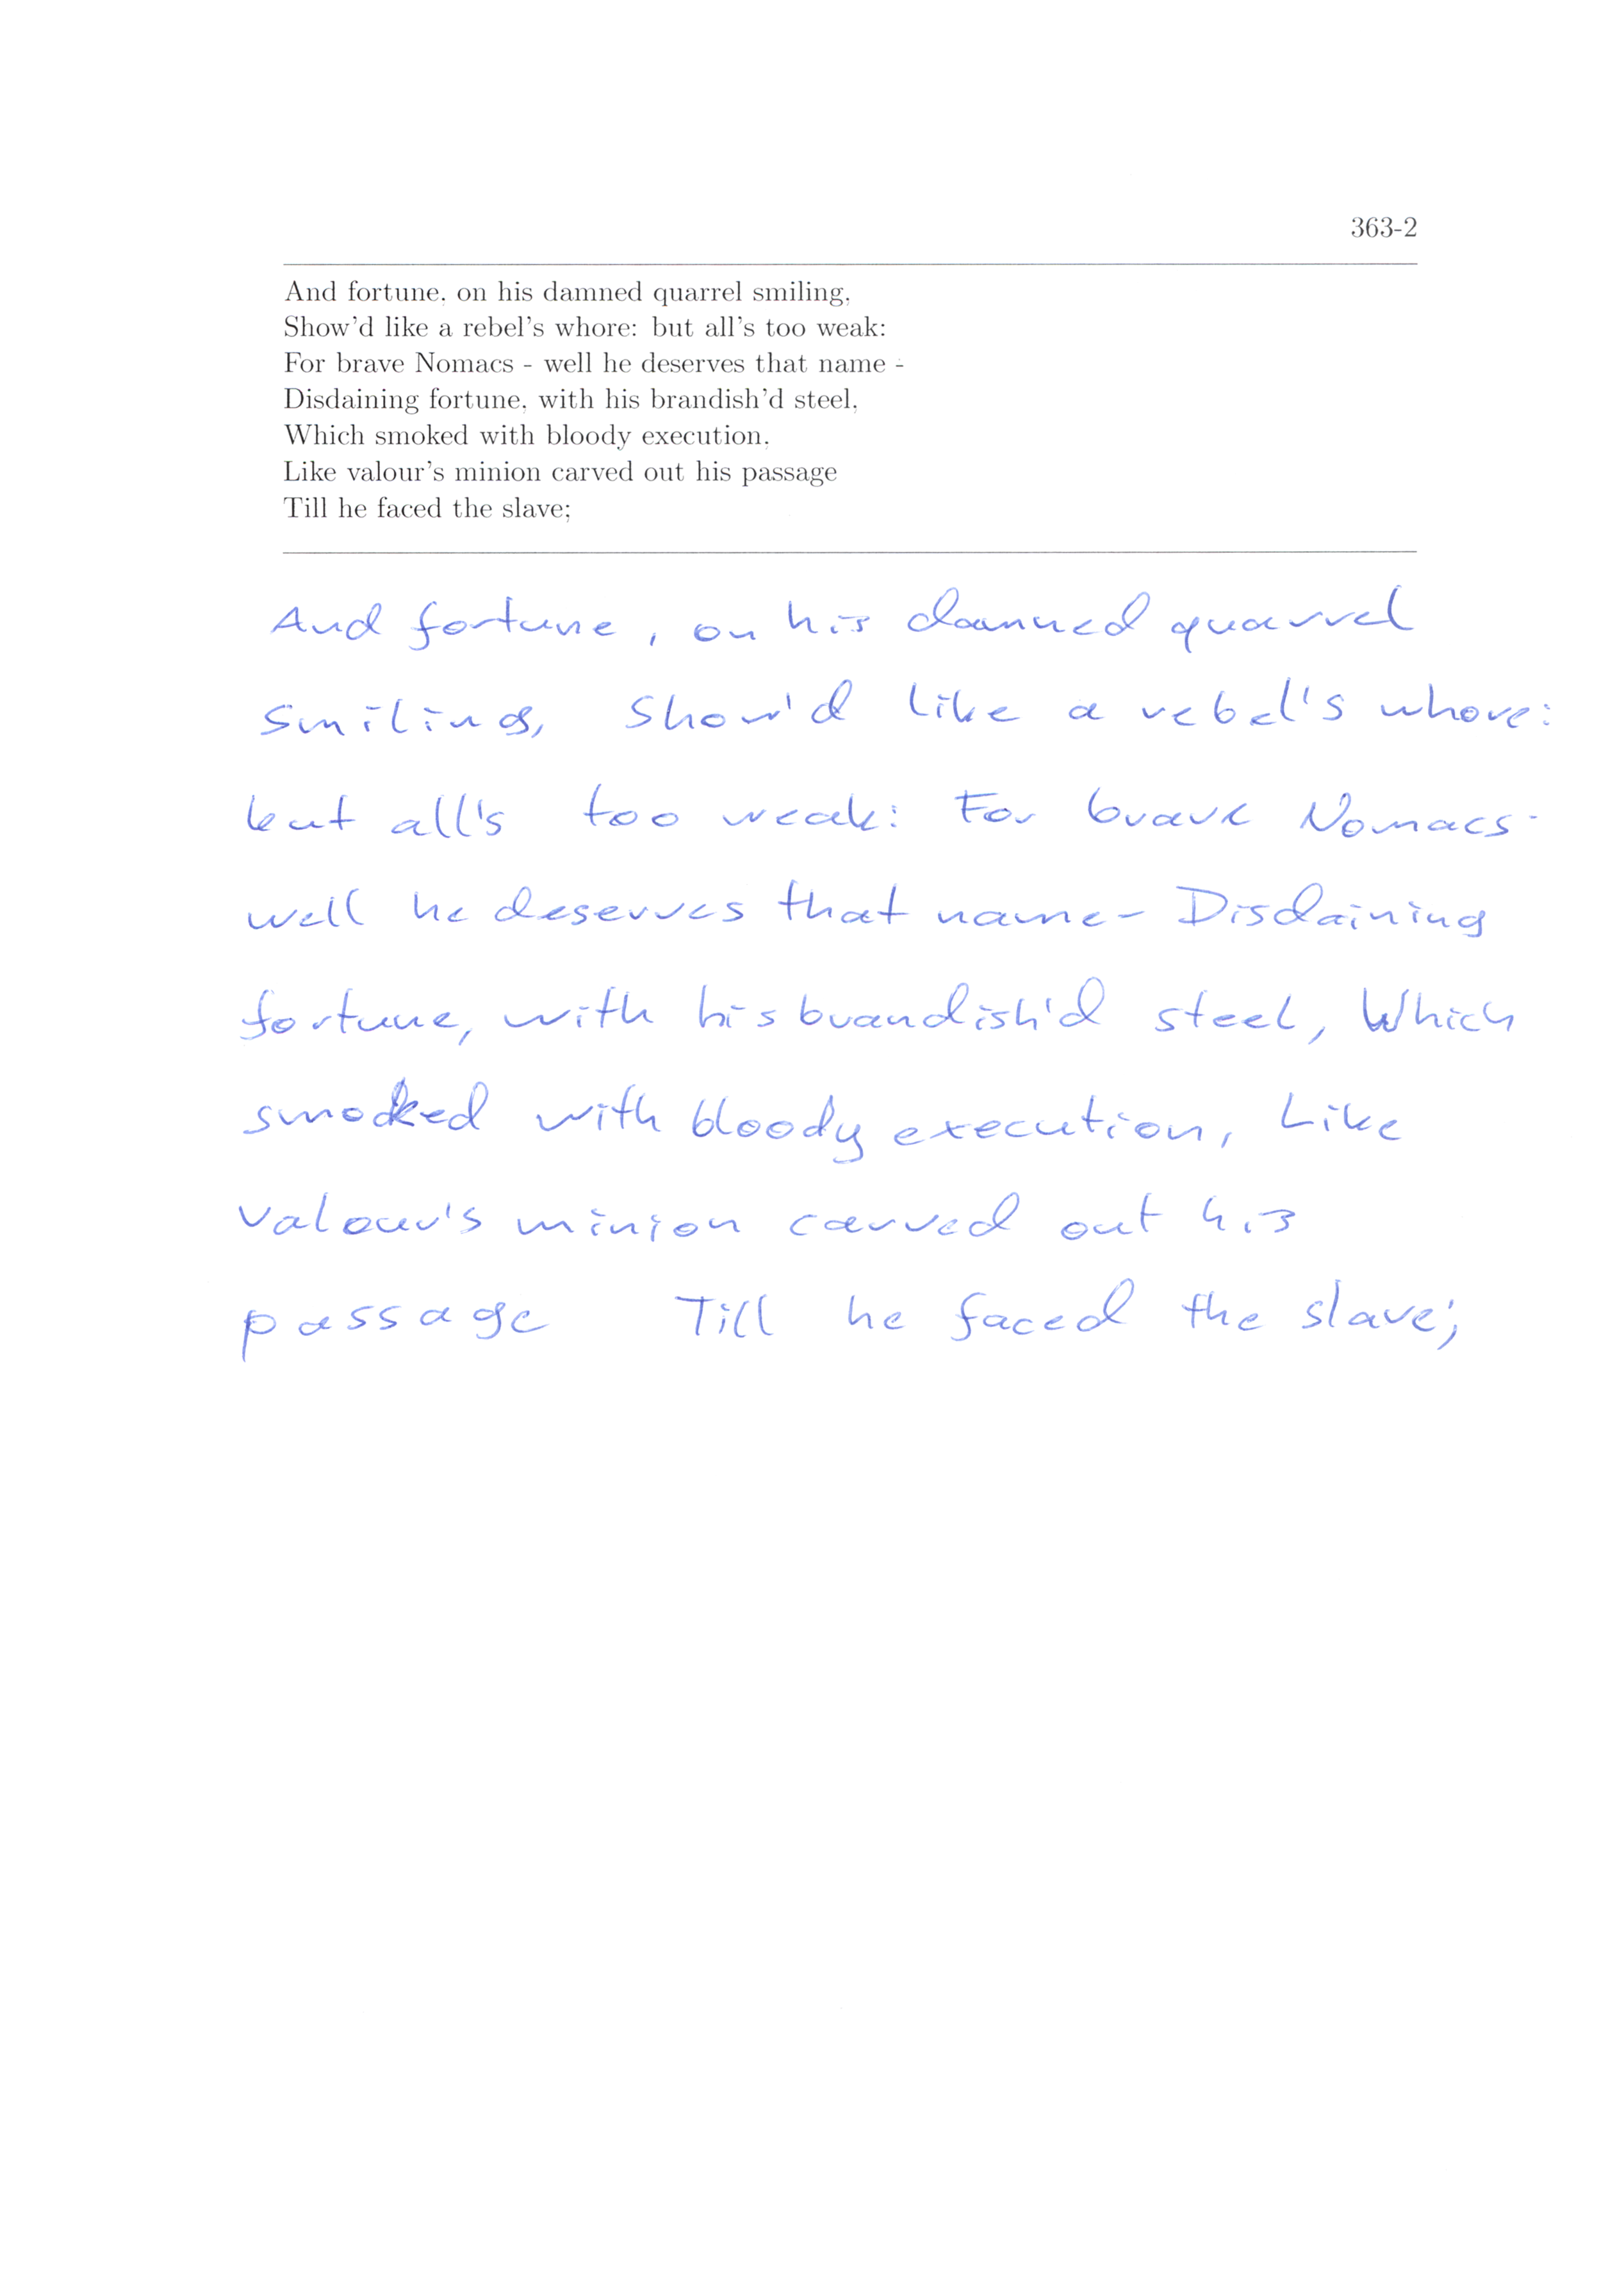 363-2
And fortune, on his damned quarrel smiling,
Show'd like a rebel's whore: but all's too weak:
For brave Nomacs - well he deserves that name -
Disdaining fortune, with his brandish'd steel,
Which smoked with bloody execution,
Like valour's minion carved out his passage
Till he faced the slave;
And fortune, on his damned quarrel
smiling, Show'd like a rebel's whore:
but all's too weak: For brave Nomacs -
well he deserves that name - Disdaining
fortune, with his brandish'd steel, Which
smoked with bloody execution, Like
valour's minion carved out his
passage Till he faced the slave;